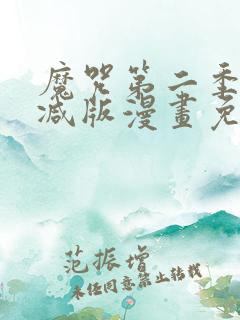 魔咒第二季
减版漫畫免
范振增
未经同意禁止转载